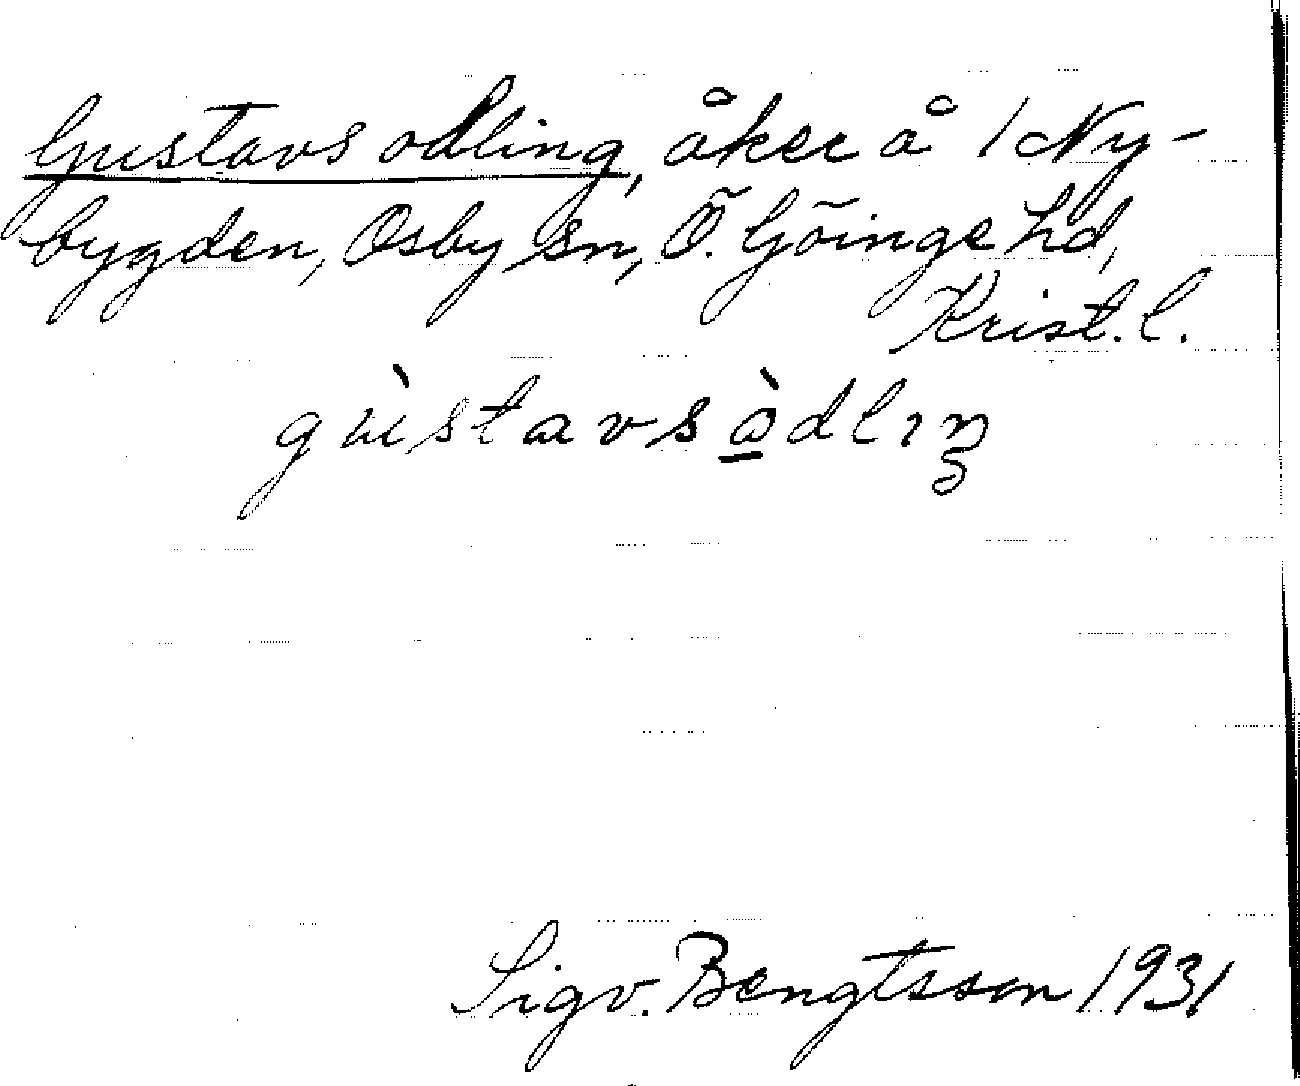 Gustavs odling, åker å 1 Ny-
bygden, Osby sn, Ö. Göinge hd,
Krist. l.
gùstavsòdlıŋ
Sigv. Bengtsson 1931